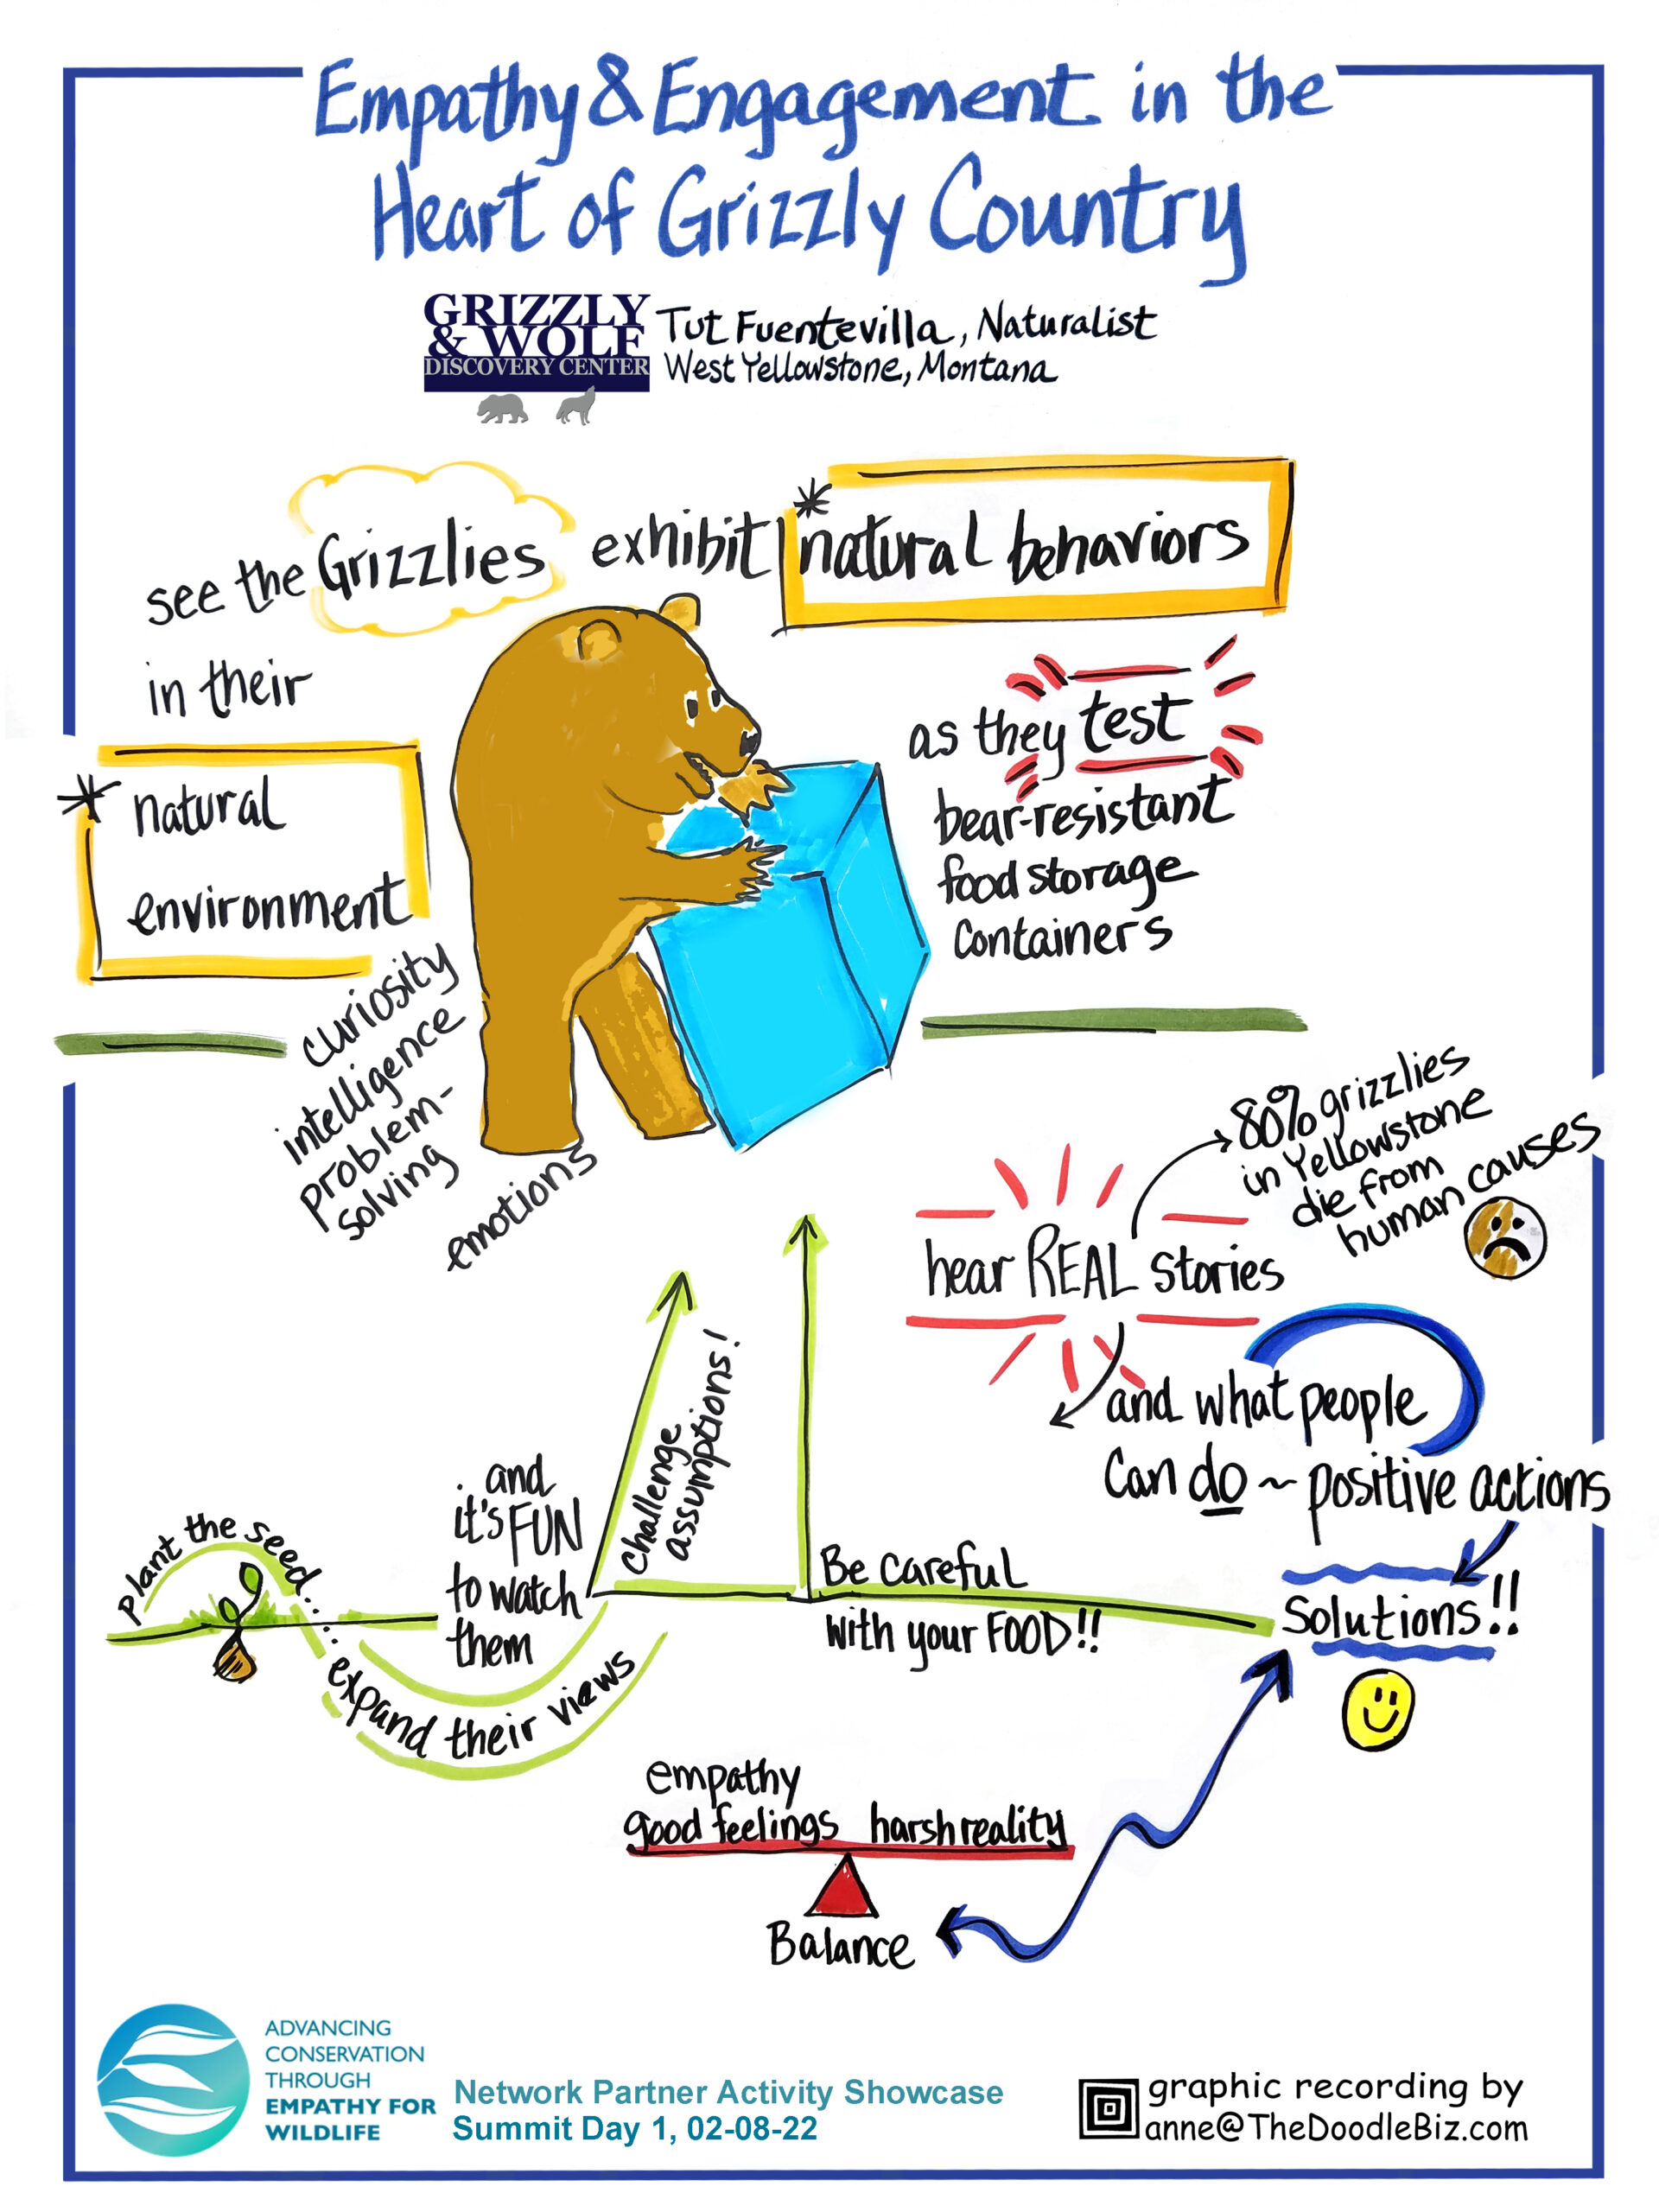 Empathy & Engagement in the
Heart of Grizzly Country
GRIZZLY
& WOLF
DISCOVERY CENTER
Tut Fuentevilla, Naturalist
West Yellowstone, Montana
see the Grizzlies exhibit *natural behaviors
in their
*natural
environment
as they test
bear-resistant
food storage
containers
curiosity
intelligence
problem-
solving
emotions
80% grizzlies
in Yellowstone
die from
human causes
hear REAL stories
and what people
can do ~ positive actions
solutions!!
Plant the seed...
... expand their views
and
it's FUN
to watch
them
challenge
assumptions!
Be careful
with your FOOD!!
empathy
good feelings harsh reality
Balance
ADVANCING
CONSERVATION
THROUGH
EMPATHY FOR
WILDLIFE
Network Partner Activity Showcase
Summit Day 1, 02-08-22
graphic recording by
anne@TheDoodleBiz.com